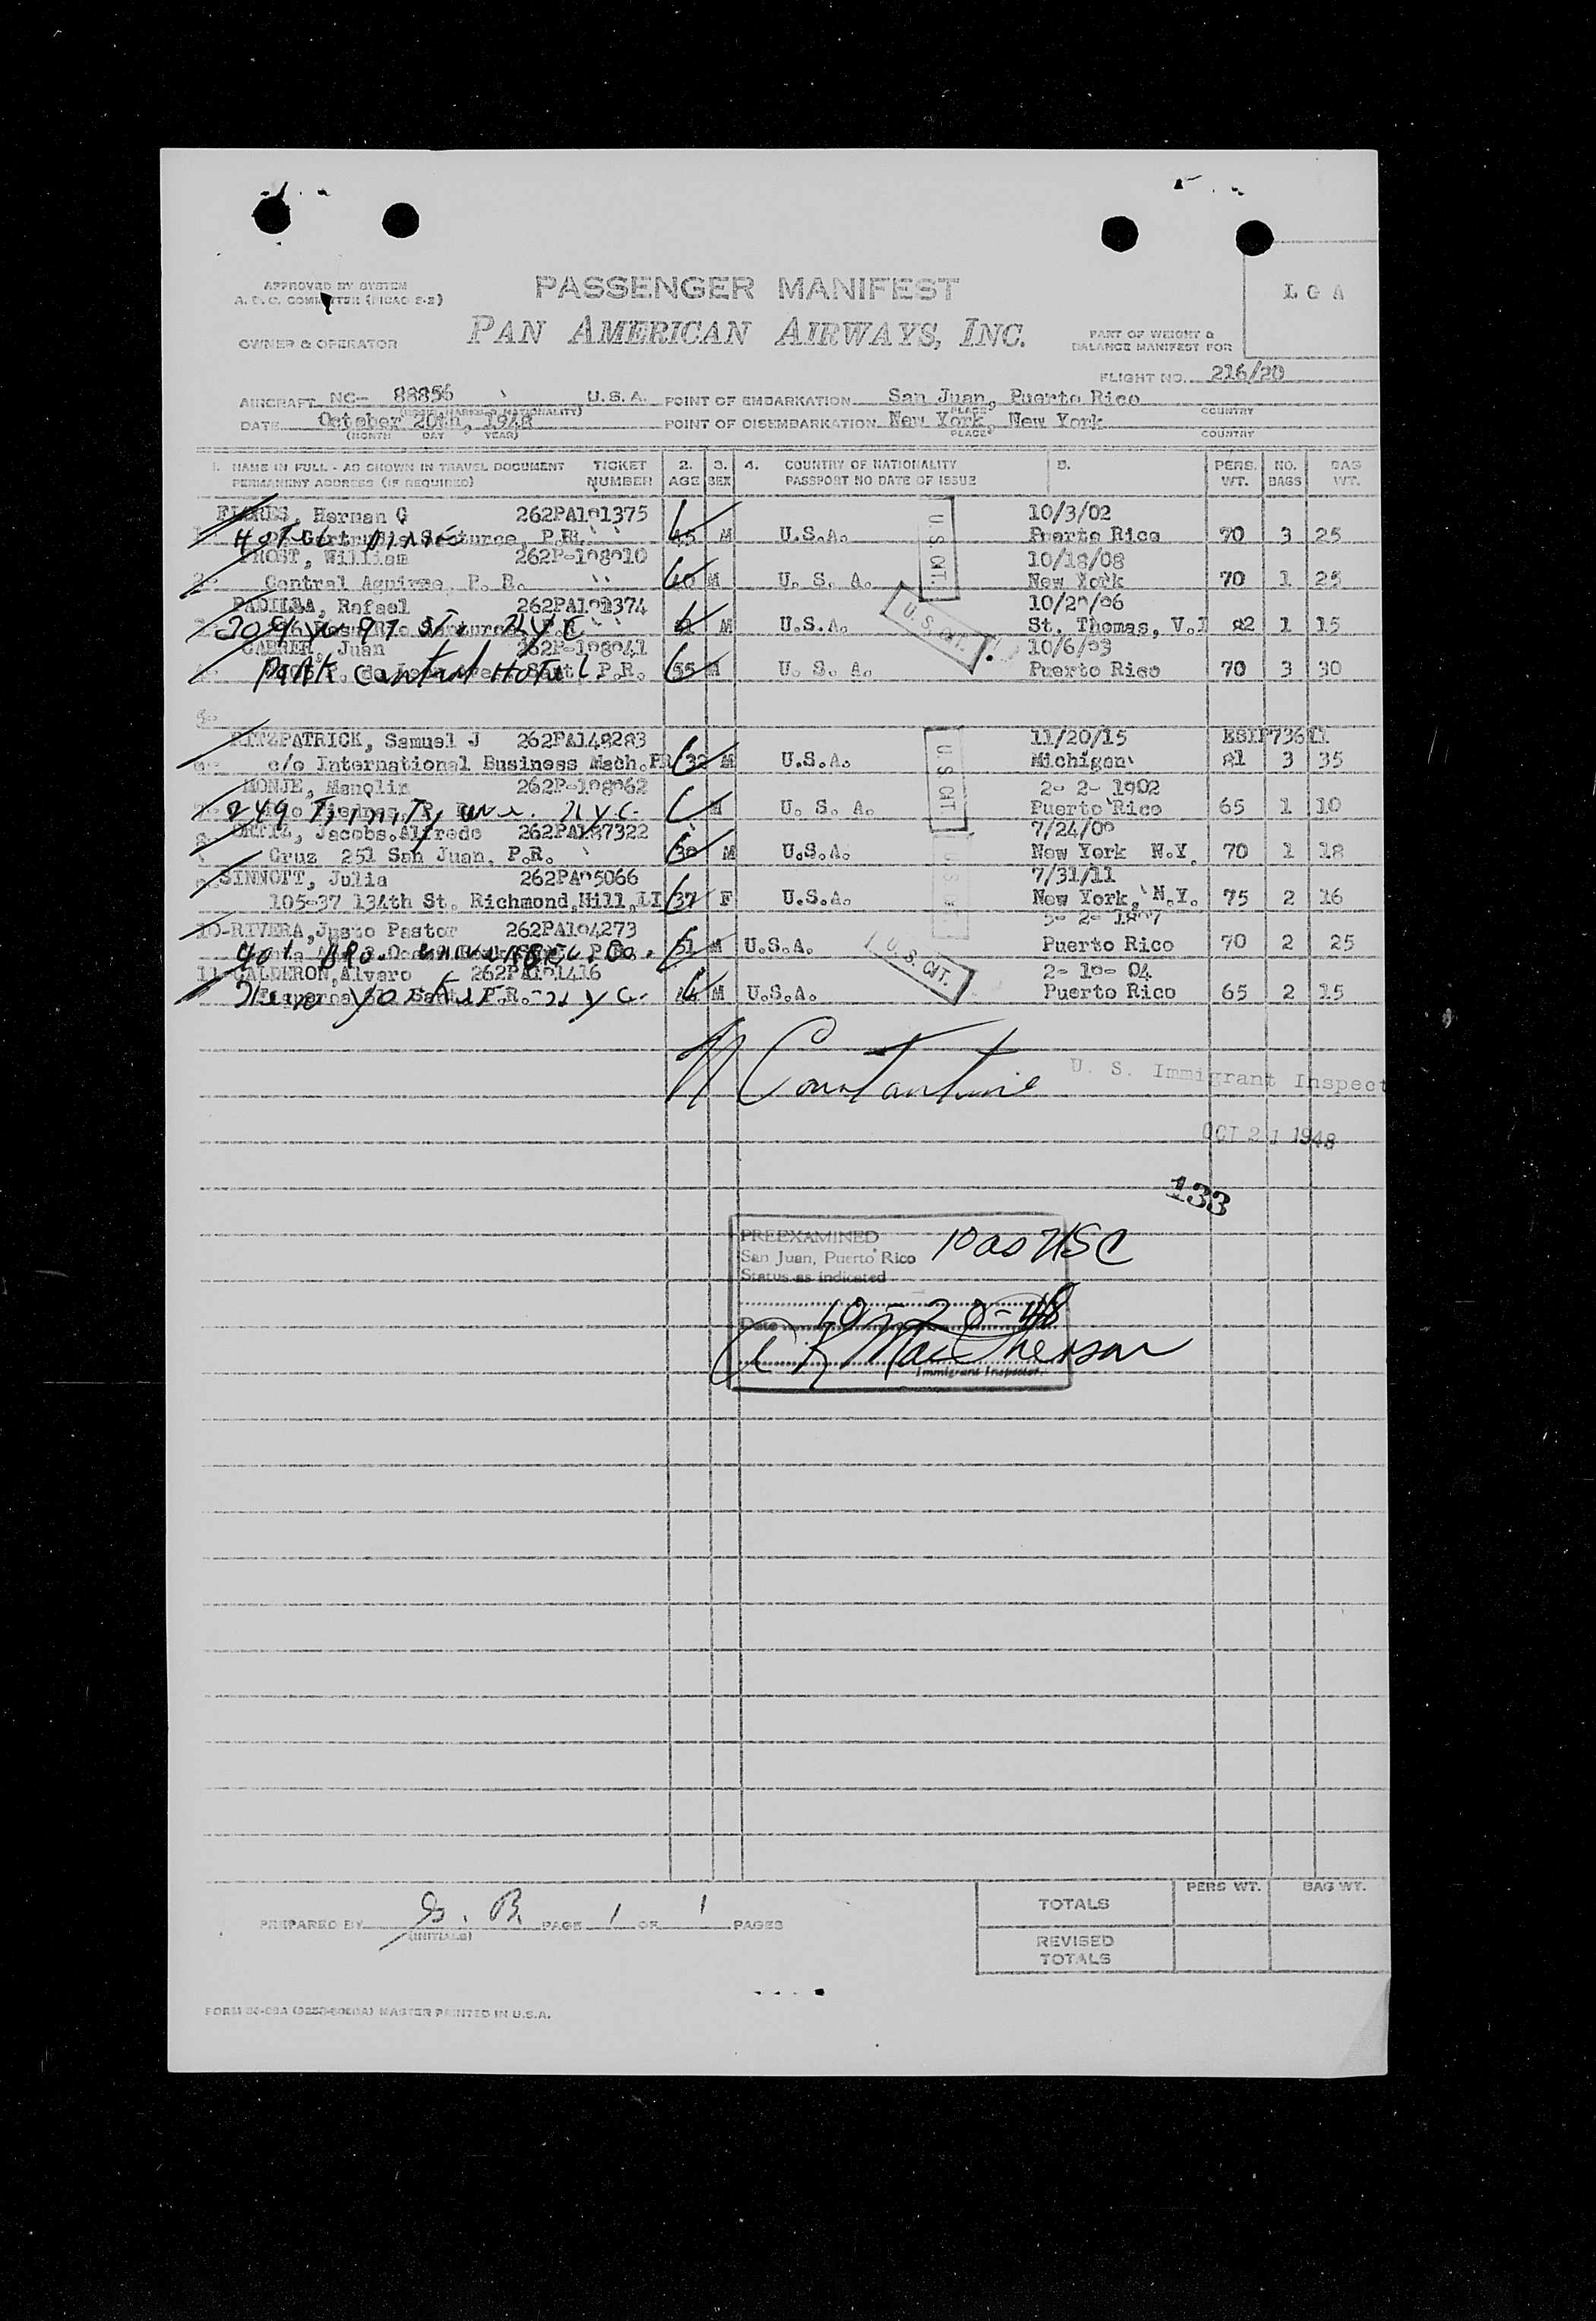 APPROVED BY SYSTEM
PASSENGER MANIFEST
L G A
PAN AMERICAN AIRWAYS, INC.
OWNER & OPERATOR
PART OF WEIGHT &
BALANCE MANIFEST FOR
FLIGHT NO. 216/20
AIRCRAFT NC- 88856 U. S. A. POINT OF EMBARKATION San Juan, Puerto Rico
PLACE COUNTRY
DATE October 20th, 1948 POINT OF DISEMBARKATION New York, New York
(MONTH DAY YEAR) PLACE COUNTRY
1. NAME IN FULL - AS SHOWN IN TRAVEL DOCUMENT TICKET 2. 3. 4. COUNTRY OF NATIONALITY 5. PERS. NO. BAG
PERMANENT ADDRESS (IF REQUIRED) NUMBER AGE SEX PASSPORT NO DATE OF ISSUE WT. BAGS WT.
FLORES, Hernan G 262PA101375 10/3/02
Santurce, P.R. 45 M U.S.A. Puerto Rico 70 3 25
FROST, William 262P-108010 10/18/08
2- Central Aguirre, P. R. 40 M U. S. A. New York 70 1 25
PADILLA, Rafael 262PA101374 10/20/06
209 W 97 St. NYC M U.S.A. St. Thomas, V.I 82 1 15
Juan 262P-108041 10/6/93
Park Central Hotel P.R. 55 M U. S. A. Puerto Rico 70 3 30
5-
FITZPATRICK, Samuel J 262PA148283 11/20/15
6- c/o International Business Mach. PR 32 M U.S.A. Michigan 81 3 35
MONJE, Manolin 262P-108062 2- 2- 1902
249 Trinity ave. NYC. M U. S. A. Puerto Rico 65 1 10
ORTIZ, Jacobs.Alfredo 262PA187322 7/24/00
Cruz 251 San Juan, P.R. M U.S.A. New York N.Y. 70 1 18
SINNOTT, Julia 262PA05066 7/31/11
105-37 134th St. Richmond,Hill,LI 37 F U.S.A. New York, N.Y. 75 2 16
10-RIVERA,Justo Pastor 262PA104273 5- 2- 1897
51 M U.S.A. Puerto Rico 70 2 25
11-CALDERON,Alvaro 262PA101416 2- 10- 04
P.R. NYC. 44 M U.S.A. Puerto Rico 65 2 15
U. S. CIT.
U. S. CIT.
U. S. CIT.
U. S. CIT.
N Constantine U. S. Immigrant Inspect
OCT 21 1948
133
PREEXAMINED 10 as USC
San Juan, Puerto Rico
Status as indicated
Date 10-20-48
MacPherson
Immigrant Inspector
PERS WT. BAG WT.
TOTALS
PREPARED BY G. B. PAGE 1 OF 1 PAGES
(INITIALS)
REVISED
TOTALS
MASTER PRINTED IN U.S.A.